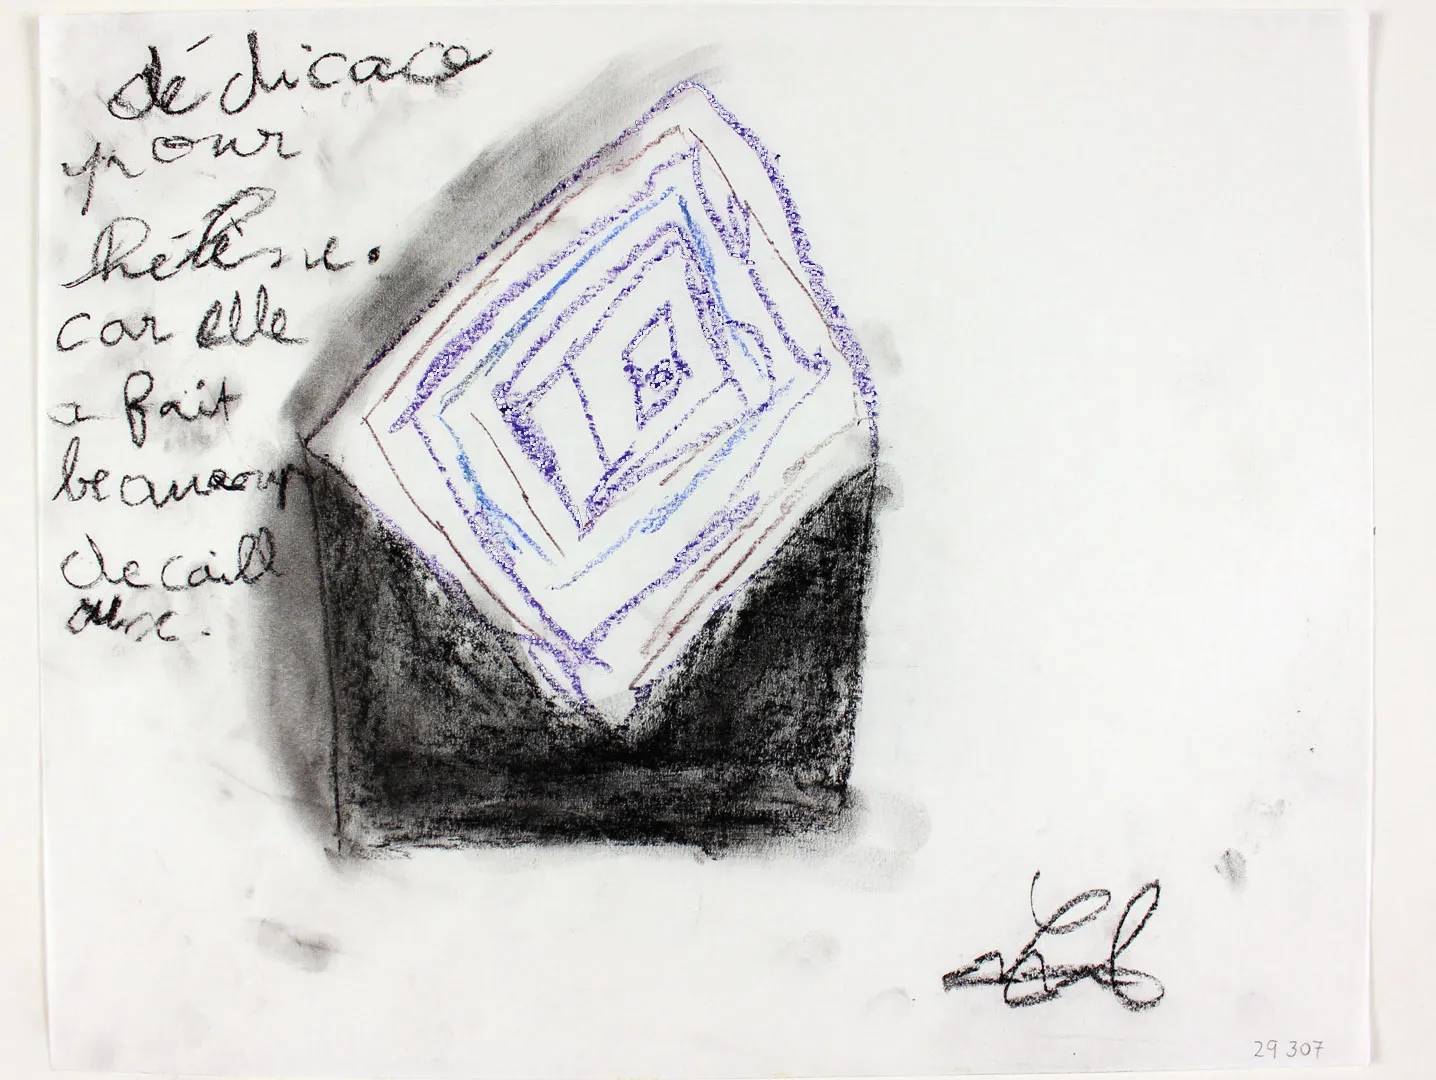 dédicace
pour
car elle
a fait
beaucoup
de caill
oux.
29 307